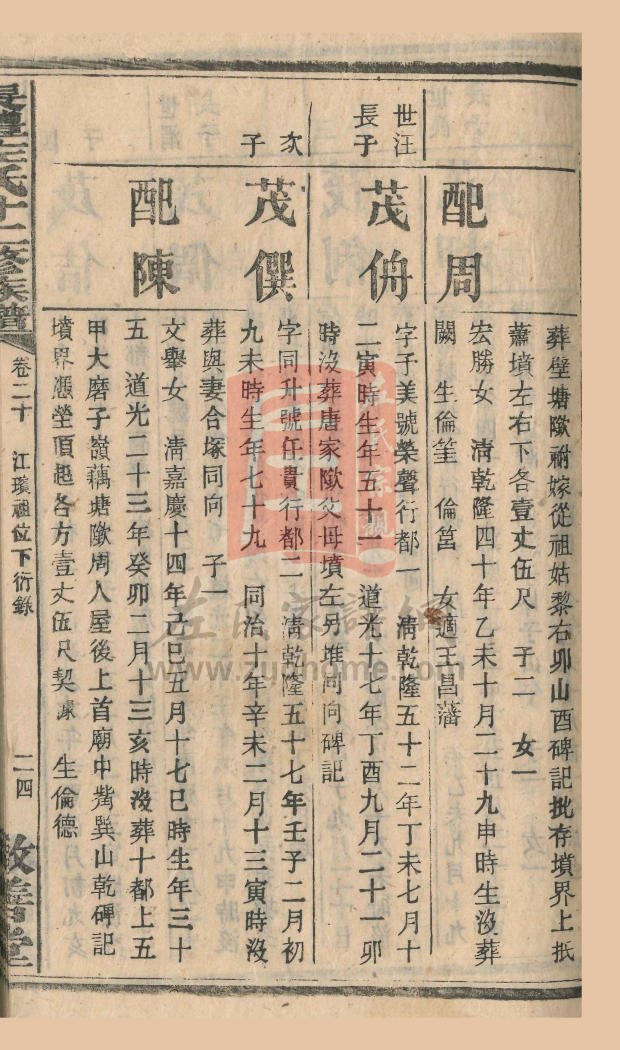 葬壁塘歐祔嫁從祖姑黎右卯山酉碑記批存墳界上抵
蕭墳左右下各壹丈伍尺　子二　女一
配周
宏勝女　清乾隆四十年乙未十月二十九申時生沒葬
闕　生倫筀　倫筥　女適王昌藩
世汪
長子
茂侜
字子美號榮聲行都一　清乾隆五十二年丁未七月十
二寅時生年五十一　道光十七年丁酉九月二十一卯
時沒葬唐家歐父母墳左另堆同向碑記
次
子
茂僎
字同升號任貴行都二　清乾隆五十七年壬子二月初
九未時生年七十九　同治十年辛未二月十三寅時沒
葬與妻合塚同向　子一
配陳
文舉女　清嘉慶十四年己巳五月十七巳時生年三十
五　道光二十三年癸卯二月十三亥時沒葬十都上五
甲大磨子嶺藕塘歐周人屋後上首廟中嘴巽山乾碑記
墳界憑塋頂起各方壹丈伍尺契據　生倫德
長澧左氏十二修族譜
卷二十　江璸祖位下衍錄
二四
敦善堂
左氏宗親
左氏家譜網
www.zuqnome.com